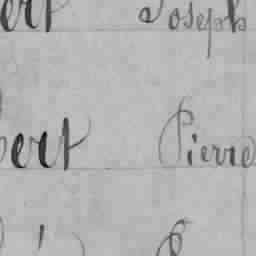 ert Joseph
bert Pierre